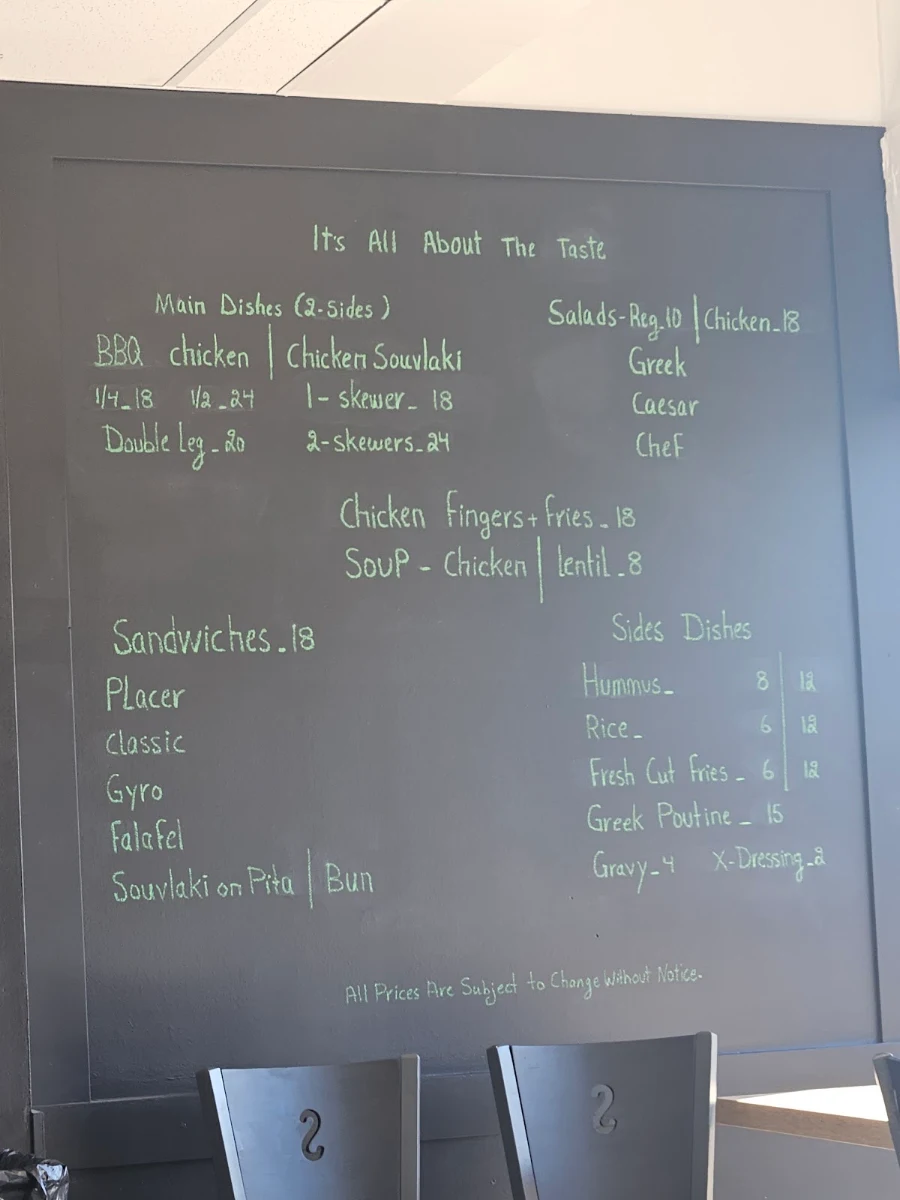 It's All About The Taste
Main Dishes (2-Sides)
BBQ chicken | Chicken Souvlaki
1/4_18 1/2_24 1-skewer_ 18
Double Leg_20 2-skewers_24
Salads-Reg_10 | Chicken_18
Greek
Caesar
Chef
Chicken Fingers + Fries_18
Soup - Chicken | lentil_8
Sandwiches_18
Placer
Classic
Gyro
Falafel
Souvlaki on Pita | Bun
Sides Dishes
Hummus_ 8 | 12
Rice_ 6 | 12
Fresh Cut Fries_ 6 | 12
Greek Poutine_ 15
Gravy_4 X-Dressing_2
All Prices Are Subject to Change Without Notice.